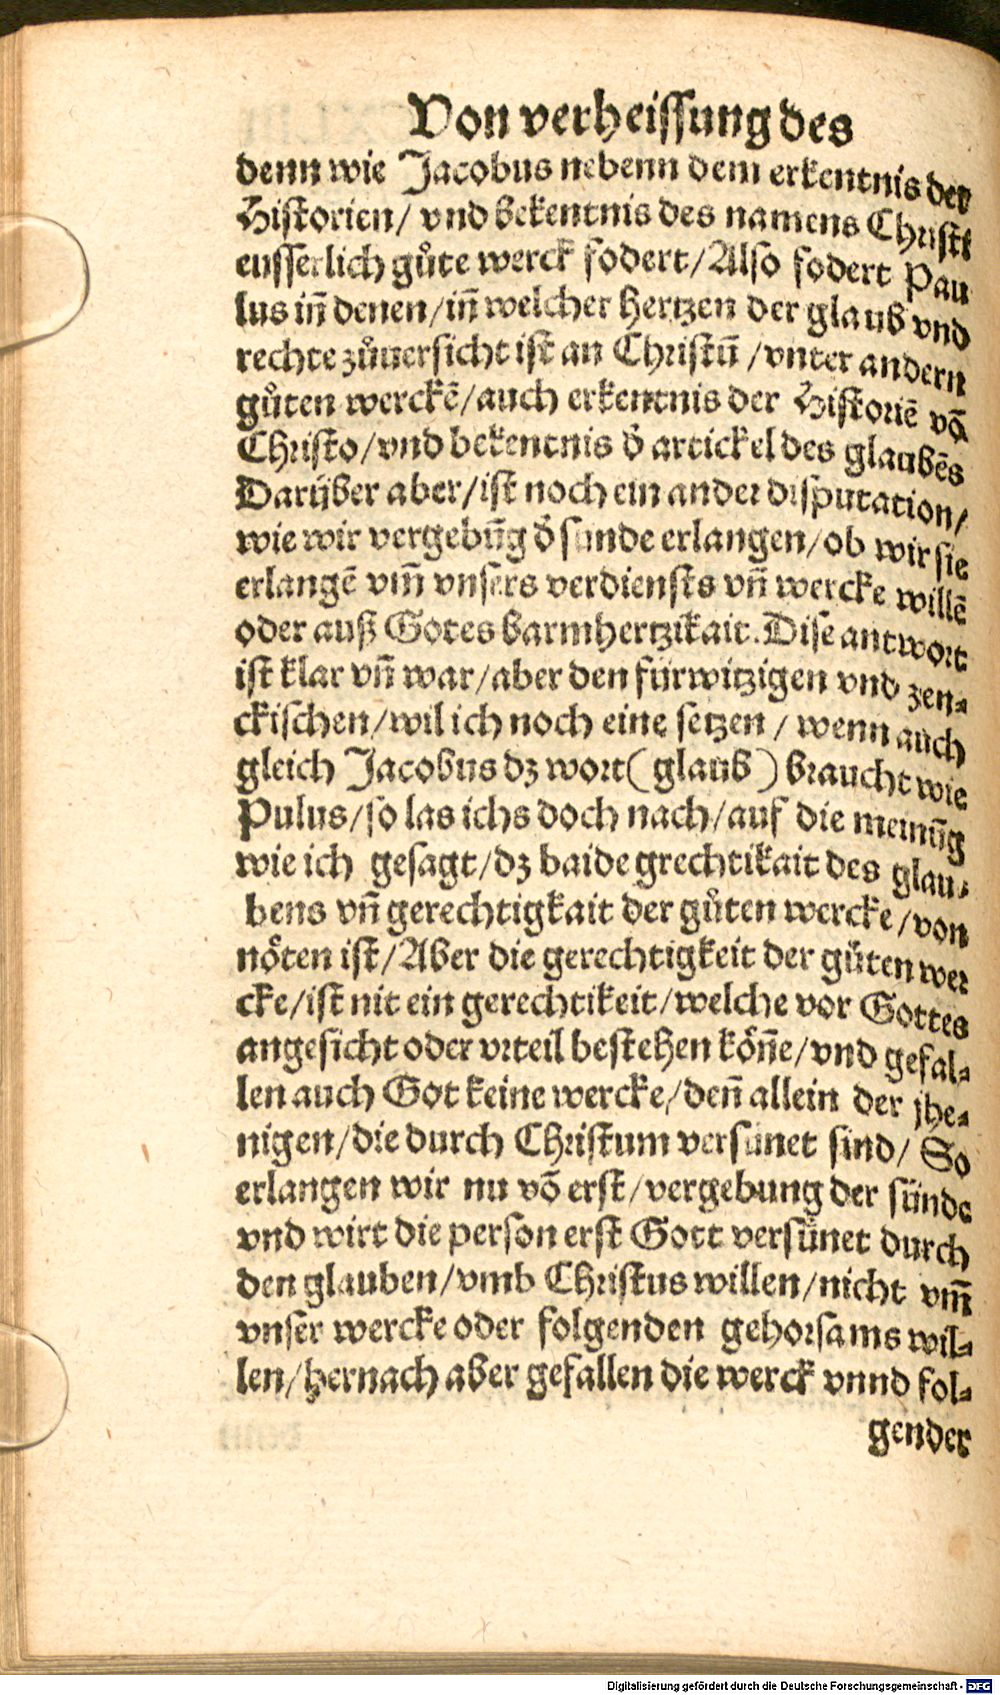 Von verheissung des
denn wie Jacobus nebenn dem erkentnis der
Historien/ vnd bekentnis des namens Christi
eusserlich gůte werck fodert/Also fodert Pau
lus iñ denen/iñ welcher hertzen der glaub vnd
rechte zůuersicht ist an Christũ /vnter andern
gůten werckẽ/auch erkentnis der Historiẽ võ
Christo/vnd bekentnis d̕ artickel des glaubẽs
Darüber aber/ist noch ein ander disputation/
wie wir vergebũg d̕ sünde erlangen/ob wir sie
erlangẽ vm̃ vnsers verdiensts vñ wercke willẽ
oder auß Gotes barmhertzikait. Dise antwort
ist klar vñ war/aber den fürwitzigen vnd zen-
ckischen/wil ich noch eine setzen / wenn auch
gleich Jacobus dz wort( glaub ) braucht wie
Pulus/so las ichs doch nach/auf die meinũg
wie ich gesagt/dz baide grechtikait des glau-
bens vñ gerechtigkait der gůten wercke/von
nöten ist/Aber die gerechtigkeit der gůten wer
cke/ist nit ein gerechtikeit/welche vor Gottes
angesicht oder vrteil bestehen köñe/vnd gefal-
len auch Got keine wercke/deñ allein der jhe-
nigen/die durch Christum versünet sind/ So
erlangen wir nu võ erst/vergebung der sünde
vnd wirt die person erst Gott versünet durch
den glauben/vmb Christus willen/nicht vm̃
vnser wercke oder folgenden gehorsams wil-
len/hernach aber gefallen die werck vnnd fol-
gender
Digitalisierung gefördert durch die Deutsche Forschungsgemeinschaft - DFG